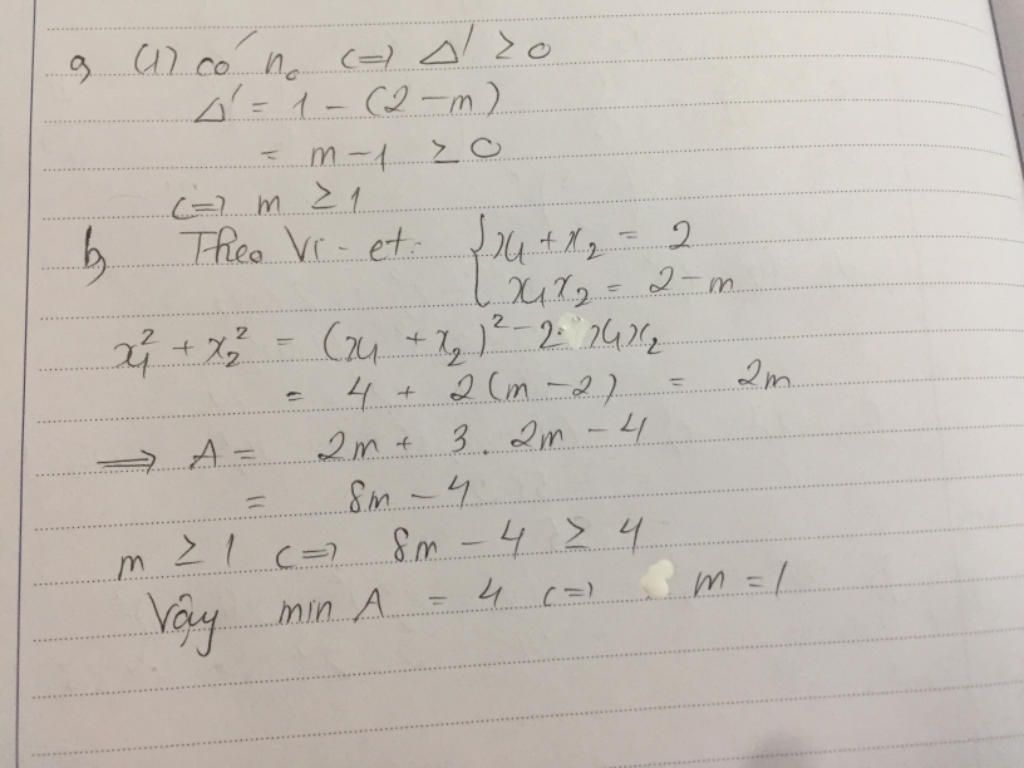 a, (1) có n₀ <=> Δ' ≥ 0
Δ' = 1 - (2 - m)
= m - 1 ≥ 0
<=> m ≥ 1
b, Theo Vi - et: { x₁ + x₂ = 2
x₁x₂ = 2 - m
x₁² + x₂² = (x₁ + x₂)² - 2. x₁x₂
= 4 + 2(m - 2) = 2m
=> A = 2m + 3. 2m - 4
= 8m - 4
m ≥ 1 <=> 8m - 4 ≥ 4
Vậy min A = 4 <=> m = 1